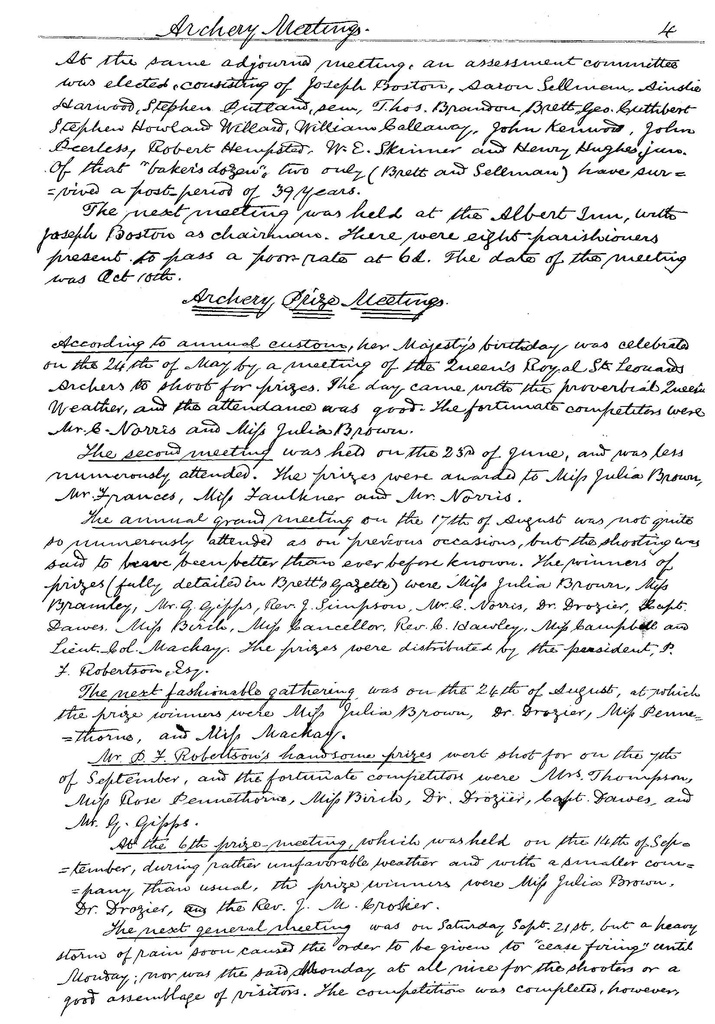 Archery Meetings. 4
At the same adjourned meeting, an assessment committee
was elected, consisting of Joseph Boston, Aaron Sellman, Ainslie
Harwood, Stephen Putland, sen, Thos. Brandon Brett, Geo. Cuthbert
Stephen Howland Willard, William Callaway, John Kenwood, John
Peerless, Robert Hempsted, W. E. Skinner and Henry Hughes, jun.
Of that "baker's dozen", two only (Brett and Sellman) have sur=
=vived a post-period of 39 years.
The next meeting was held at the Albert Inn, with
Joseph Boston as chairman. There were eight parishioners
present to pass a poor-rate at 6d. The date of the meeting
was Oct 10th.
Archery Prize Meetings.
According to annual custom, her Majesty's birthday was celebrated
on the 24th of May by a meeting of the Queen's Royal St. Leonards
Archers to shoot for prizes. The day came with the proverbial Queen's
Weather, and the attendance was good. The fortunate competitors were
Mr. C. Norris and Miss Julia Brown.
The second meeting was held on the 23rd of June, and was less
numerously attended. The prizes were awarded to Miss Julia Brown,
Mr. Frances, Miss Faulkner and Mr. Norris.
The annual grand meeting on the 17th of August was not quite
so numerously attended as on previous occasions, but the shooting was
said to have been better than ever before known. The winners of
prizes (fully detailed in Brett's Gazette) were Miss Julia Brown, Miss
Bramley, Mr. G. Gipps, Rev. J. Simpson, Mr. C. Norris, Dr. Drozier, Capt.
Dawes, Miss Birch, Miss Cancellor, Rev. C. Hawley, Miss Campbell and
Lieut. Col. Mackay. The prizes were distributed by the president, P.
F. Robertson, Esq.
The next fashionable gathering was on the 24th of August, at which
the prize winners were Miss Julia Brown, Dr. Drozier, Miss Penne=
=thorne, and Miss Mackay.
Mr. P. F. Robertson's handsome prizes wert shot for on the 7th
of September, and the fortunate competitors were Mrs. Thompson,
Miss Rose Pennethorne, Miss Birch, Dr. Drozier, Capt. Dawes, and
Mr. G. Gipps.
At the 6th prize-meeting, which was held on the 14th of Sep=
=tember, during rather unfavorable weather and with a smaller com=
=pany than usual, the prize winners were Miss Julia Brown,
Dr. Drozier, and the Rev. J. M. Crosier.
The next general meeting was on Saturday Sept. 21st, but a heavy
storm of rain soon caused the order to be given to "cease firing" until
Monday; nor was the said Monday at all nice for the shooters or a
good assemblage of visitors. The competition was completed, however,